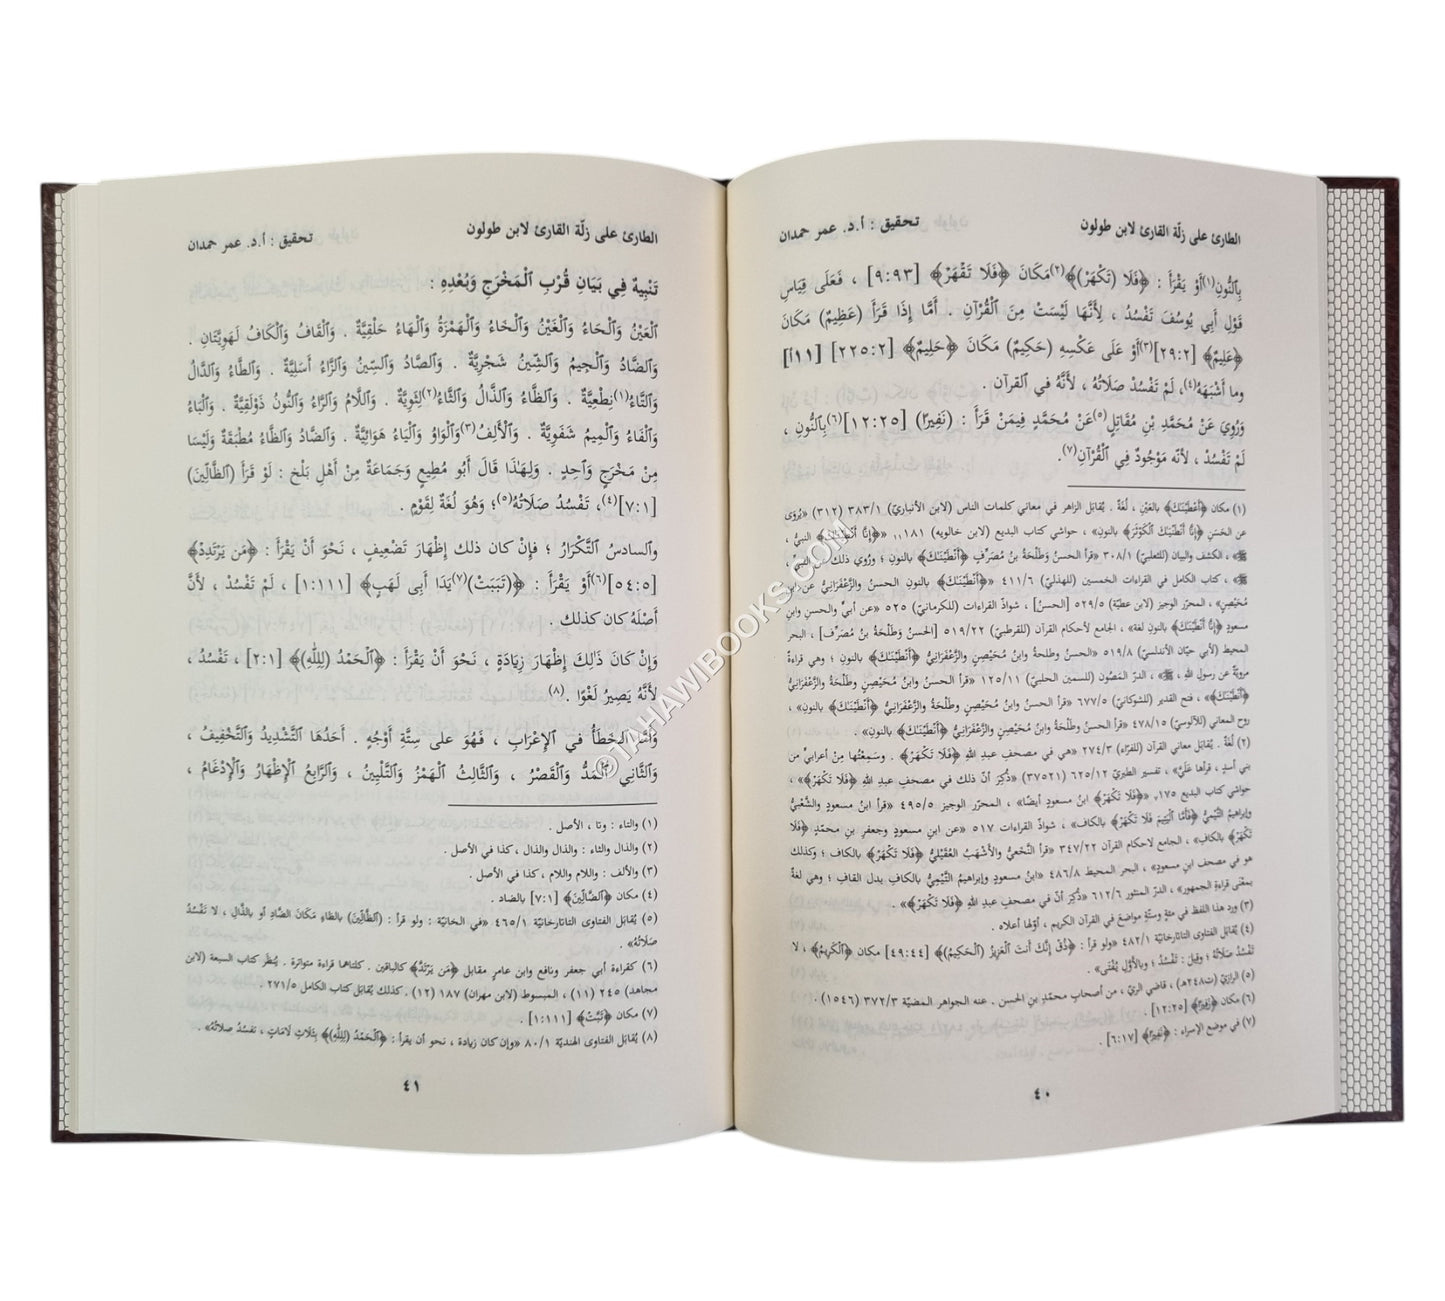 الطارئ على زلّة القارئ لابن طولون
تحقيق : أ.د. عمر حمدان
بِٱلنُّونِ(١)أَوْ يَقْرَأَ : ﴿فَلَا (تَكْهَرْ)﴾(٢)مَكَانَ ﴿فَلَا تَقْهَرْ﴾ [٩:٩٣] ، فَعَلَى قِيَاسِ
قَوْلِ أَبِي يُوسُفَ تَفْسُدُ ، لِأَنَّهَا لَيْسَتْ مِنَ ٱلْقُرْآنِ . أَمَّا إِذَا قَرَأَ (عَظِيمٌ) مَكَانَ
﴿عَلِيمٌ﴾ [٢٩:٢](٣)أَوْ عَلَى عَكْسِهِ (حَكِيمٌ) مَكَانَ ﴿حَلِيمٌ﴾ [٢٢٥:٢] [١١أ]
وما أَشْبَهَهُ(٤)، لَمْ تَفْسُدْ صَلَاتُهُ ، لأَنَّهُ في ٱلقرآن .
وَرُوِيَ عَنْ مُحَمَّدِ بْنِ مُقَاتِلٍ(٥)عَنْ مُحَمَّدٍ فِيمَنْ قَرَأَ : (نَفِيرًا) [١٢:٢٥](٦)بِٱلنُّونِ ،
لَمْ تَفْسُدْ ، لأَنَّه مَوْجُودٌ فِي ٱلْقُرْآنِ(٧).
(١) مكان ﴿أَعْطَيْنَكَ﴾ بالعَيْنِ ، لُغَةٌ . يُقابَل الزاهر في معاني كلمات الناس (لابن الأنباريّ) ٣٨٣/١ (٣١٢) «يُروَى
عن الحَسَنِ ﴿إِنَّا أَنْطَيْنَكَ ٱلْكَوْثَرَ﴾ بالنونِ» ، حواشي كتاب البديع (لابن خالويه) ١٨١ «﴿إِنَّا أَنْطَيْنَكَ﴾ النبيُّ ،
ﷺ» ، الكشف والبيان (للثعلبيّ) ٣٠٨/١ «قرأ الحسنُ وطَلْحَةُ بنُ مُصَرِّفٍ ﴿أَنْطَيْنَكَ﴾ بالنونِ ؛ ورُوي ذلك عن النبي ،
ﷺ» ، كتاب الكامل في القراءات الخمسين (للهذليّ) ٤١١/٦ «﴿أَنْطَيْنَكَ﴾ بالنونِ الحسنُ والزَّعْفَرَانِيُّ عن ابنِ
مُحَيْصِنٍ» ، المحرّر الوجيز (لابن عطيّة) ٥٢٩/٥ [الحسن] ، شواذّ القراءات (للكرمانيّ) ٥٢٥ «عن أبيٍّ والحسنِ وابنِ
مسعودٍ ﴿إِنَّا أَنْطَيْنَكَ﴾ بالنونِ لغة» ، الجامع لأحكام القرآن (للقرطبيّ) ٥١٩/٢٢ [الحسنُ وطَلْحَةُ بنُ مُصَرِّف] ، البحر
المحيط (لأبي حيّان الأندلسيّ) ٥١٩/٨ «الحسنُ وطلحةُ وابنُ مُحَيْصِنٍ والزَّعْفَرَانِيُّ ﴿أَنْطَيْنَكَ﴾ بالنونِ ؛ وهي قراءةٌ
مرويةٌ عن رسولِ اللهِ ، ﷺ» ، الدرّ المصُون (للسمين الحلبيّ) ١٢٥/١١ «قرأ الحسنُ وابنُ مُحَيْصِنٍ وطَلْحَةُ والزَّعْفَرَانِيُّ
﴿أَنْطَيْنَكَ﴾» ، فتح القدير (للشوكانيّ) ٦٧٧/٥ «قرأ الحسنُ وابنُ مُحَيْصِنٍ وطَلْحَةُ والزَّعْفَرَانِيُّ ﴿أَنْطَيْنَكَ﴾ بالنون» ،
روح المعاني (للآلوسيّ) ٤٧٨/١٥ «قرأ الحسنُ وطَلْحَةُ وابنُ مُحَيْصِنٍ والزَّعْفَرَانِيُّ ﴿أَنْطَيْنَكَ﴾ بالنونِ» .
(٢) لُغَةٌ . يُقابَل معاني القرآن (للفرّاء) ٢٧٤/٣ «هي في مصحفِ عبدِ اللهِ ﴿فَلَا تَكْهَرْ﴾ . وسَمِعْتُها مِنْ أعرابيٍّ من
بني أسد ، قرأها عَلَيَّ» ، تفسير الطبريّ ٦٢٥/١٢ (٣٧٥٢١) «ذُكِرَ أنّ ذلك في مصحفِ عبدِ اللهِ ﴿فَلَا تَكْهَرْ﴾» ،
حواشي كتاب البديع ١٧٥ «﴿فَلَا تَكْهَرْ﴾ ابنُ مسعودٍ أيضًا» ، المحرّر الوجيز ٤٩٥/٥ «قرأ ابنُ مسعودٍ والشَّعْبِيُّ
وإبراهيمُ التَّيْمِيُّ ﴿فَأَمَّا ٱلْيَتِيمَ فَلَا تَكْهَرْ﴾ بالكاف» ، شواذّ القراءات ٥١٧ «عن ابنِ مسعودٍ وجعفرِ بنِ محمّدٍ ﴿فَلَا
تَكْهَرْ﴾ بالكاف» ، الجامع لاحكام القرآن ٣٤٧/٢٢ «قرأ النَّخَعِيُّ والأَشْهَبُ العُقَيْلِيُّ ﴿فَلَا تَكْهَرْ﴾ بالكاف ؛ وكذلك
هو في مصحف ابنِ مسعودٍ» ، البحر المحيط ٤٨٦/٨ «ابنُ مسعودٍ وإبراهيمُ التَّيْمِيُّ بالكافِ بدل القافِ ؛ وهي لغةٌ
بمعْنَى قراءةِ الجمهور» ، الدرّ المنثور ٦١٢/٦ «ذُكِرَ أنّ في مصحفِ عبدِ اللهِ ﴿فَلَا تَكْهَرْ﴾» .
(٣) ورد هذا اللفظ في مئةٍ وستّةِ مواضعَ في القرآن الكريم ، أوّلها أعلاه .
(٤) يُقابَل الفتاوى التاتارخانيّة ٤٨٢/١ «ولو قرأ : ﴿ذُقْ إِنَّكَ أَنتَ ٱلْعَزِيزُ (ٱلْحَكِيمُ)﴾ [٤٩:٤٤] مكان ﴿ٱلْكَرِيمُ﴾ ، لا
تَفْسُدُ صَلَاتُهُ ؛ وقيلَ : تَفْسُدُ ؛ وبالأوّلِ يُفْتَى» .
(٥) الرازيّ (ت٢٤٨هـ) ، قاضي الريّ ، من أصحابِ محمّدِ بنِ الحسن . عنه الجواهر المضيّة ٣٧٢/٣ (١٥٤٦) .
(٦) مكان ﴿زَفِيرًا﴾ [١٢:٢٥] .
(٧) في موضع الإسراء : ﴿نَفِيرًا﴾ [٦:١٧] .
٤٠
الطارئ على زلّة القارئ لابن طولون
تحقيق : أ.د. عمر حمدان
تَنْبِيهٌ فِي بَيَانِ قُرْبِ ٱلْمَخْرَجِ وَبُعْدِهِ :
ٱلْعَيْنُ وَٱلْحَاءُ وَٱلْغَيْنُ وَٱلْخَاءُ وَٱلْهَمْزَةُ وَٱلْهَاءُ حَلْقِيَّةٌ . وَٱلْقَافُ وَٱلْكَافُ لَهَوِيَّتَانِ .
وَٱلضَّادُ وَٱلْجِيمُ وَٱلشِّينُ شَجْرِيَّةٌ . وَٱلصَّادُ وَٱلسِّينُ وَٱلزَّاءُ أَسَلِيَّةٌ . وَٱلطَّاءُ وَٱلدَّالُ
وَٱلتَّاءُ(١)نِطْعِيَّةٌ . وَٱلظَّاءُ وَٱلذَّالُ وَٱلثَّاءُ(٢)لِثَوِيَّةٌ . وَٱللَّامُ وَٱلرَّاءُ وَٱلنُّونُ ذَوْلَقِيَّةٌ . وَٱلْبَاءُ
وَٱلْفَاءُ وَٱلْمِيمُ شَفَوِيَّةٌ . وَٱلْأَلِفُ(٣)وَٱلْوَاوُ وَٱلْيَاءُ هَوَائِيَّةٌ . وَٱلضَّادُ وَٱلظَّاءُ مُطْبَقَةٌ وَلَيْسَا
مِنْ مَخْرَجٍ وَاحِدٍ . وَلِهٰذَا قَالَ أَبُو مُطِيعٍ وَجَمَاعَةٌ مِنْ أَهْلِ بَلْخ : لَوْ قَرَأَ (ٱلظَّالِّينَ)
[٧:١](٤)، تَفْسُدُ صَلَاتُهُ(٥)؛ وَهُوَ لُغَةٌ لِقَوْمٍ .
وٱلسادسُ ٱلتَّكْرَارُ ؛ فإنْ كان ذلك إظْهَارَ تَضْعِيفٍ ، نَحْوَ أَنْ يَقْرَأَ : ﴿مَن يَرْتَدِدْ﴾
[٥٤:٥](٦)أَوْ يَقْرَأَ : ﴿(تَبَبَتْ)(٧)يَدَا أَبِى لَهَبٍ﴾ [١:١١١] ، لَمْ تَفْسُدْ ، لأَنَّ
أَصْلَهُ كان كذلك .
وَإِنْ كَانَ ذَلِكَ إِظْهَارَ زِيَادَةٍ ، نَحْوَ أَنْ يَقْرَأَ : ﴿ٱلْحَمْدُ (لِلِلَّهِ)﴾ [٢:١] ، تَفْسُدُ ،
لأَنَّهُ يَصِيرُ لَغْوًا .(٨)
وَأَمَّا ٱلْخَطَأُ في ٱلْإِعْرَابِ ، فَهُوَ على سِتَّةِ أَوْجُهٍ . أَحَدُهَا ٱلتَّشْدِيدُ وَٱلتَّخْفِيفُ ،
وَٱلثَّانِي ٱلْمَدُّ وَٱلْقَصْرُ ، وَٱلثَّالِثُ ٱلْهَمْزُ وَٱلتَّلْيِينُ ، وَٱلرَّابِعُ ٱلْإِظْهَارُ وَٱلْإِدْغَامُ ،
(١) والتاء : وتا ، الأصل .
(٢) والذال والثاء : والذال والذال ، كذا في الأصل .
(٣) والألف : واللام واللام ، كذا في الأصل .
(٤) مكان ﴿ٱلضَّآلِّينَ﴾ [٧:١] بالضاد .
(٥) يُقابَل الفتاوى التاتارخانيّة ٤٦٥/١ «في الخانيّة : ولو قرأ : (ٱلظَّالِّينَ) بالظاءِ مَكَانَ الضَّادِ أو بالذَّالِ ، لا تَفْسُدُ
صلَاتُهُ» .
(٦) كقراءة أبي جعفر ونافع وابن عامرٍ مقابل ﴿مَن يَرْتَدَّ﴾ كالباقين . كلتاهما قراءة متواترة . يُنظَر كتاب السبعة (لابن
مجاهد) ٢٤٥ (١١) ، المبسوط (لابن مهران) ١٨٧ (١٢) . كذلك يُقابَل كتاب الكامل ٢٧١/٥ .
(٧) مكان ﴿تَبَّتْ﴾ [١:١١١] .
(٨) يُقابَل الفتاوى الهنديّة ٨٠/١ «وإن كان زيادة ، نحو أن يقرأ : ﴿ٱلْحَمْدُ (لِلِلَّهِ)﴾ بِثَلاثِ لَامَاتٍ ، تفسدُ صلاتُهُ» .
٤١
©TAHAWIBOOKS.COM